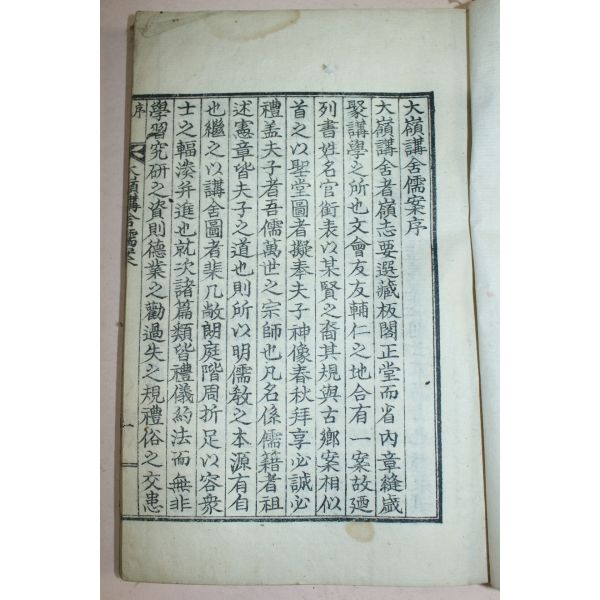 大嶺講舍儒案序
大嶺講舍者嶺志要選藏板閣正堂而省內章縫歲
聚講學之所也文會友友輔仁之地合有一案故廼
列書姓名官銜表以某賢之裔其規與古鄉案相似
首之以聖堂圖者擬奉夫子神像春秋拜享必誠必
禮盖夫子者吾儒萬世之宗師也凡名係儒籍者祖
述憲章皆夫子之道也則所以明儒教之本源有自
也繼之以講舍圖者棐几敞朗庭階周折足以容衆
士之輻湊并進也就次諸篇類皆禮儀約法而無非
學習究研之資則德業之勸過失之規禮俗之交患
序 大嶺講舍儒案 一